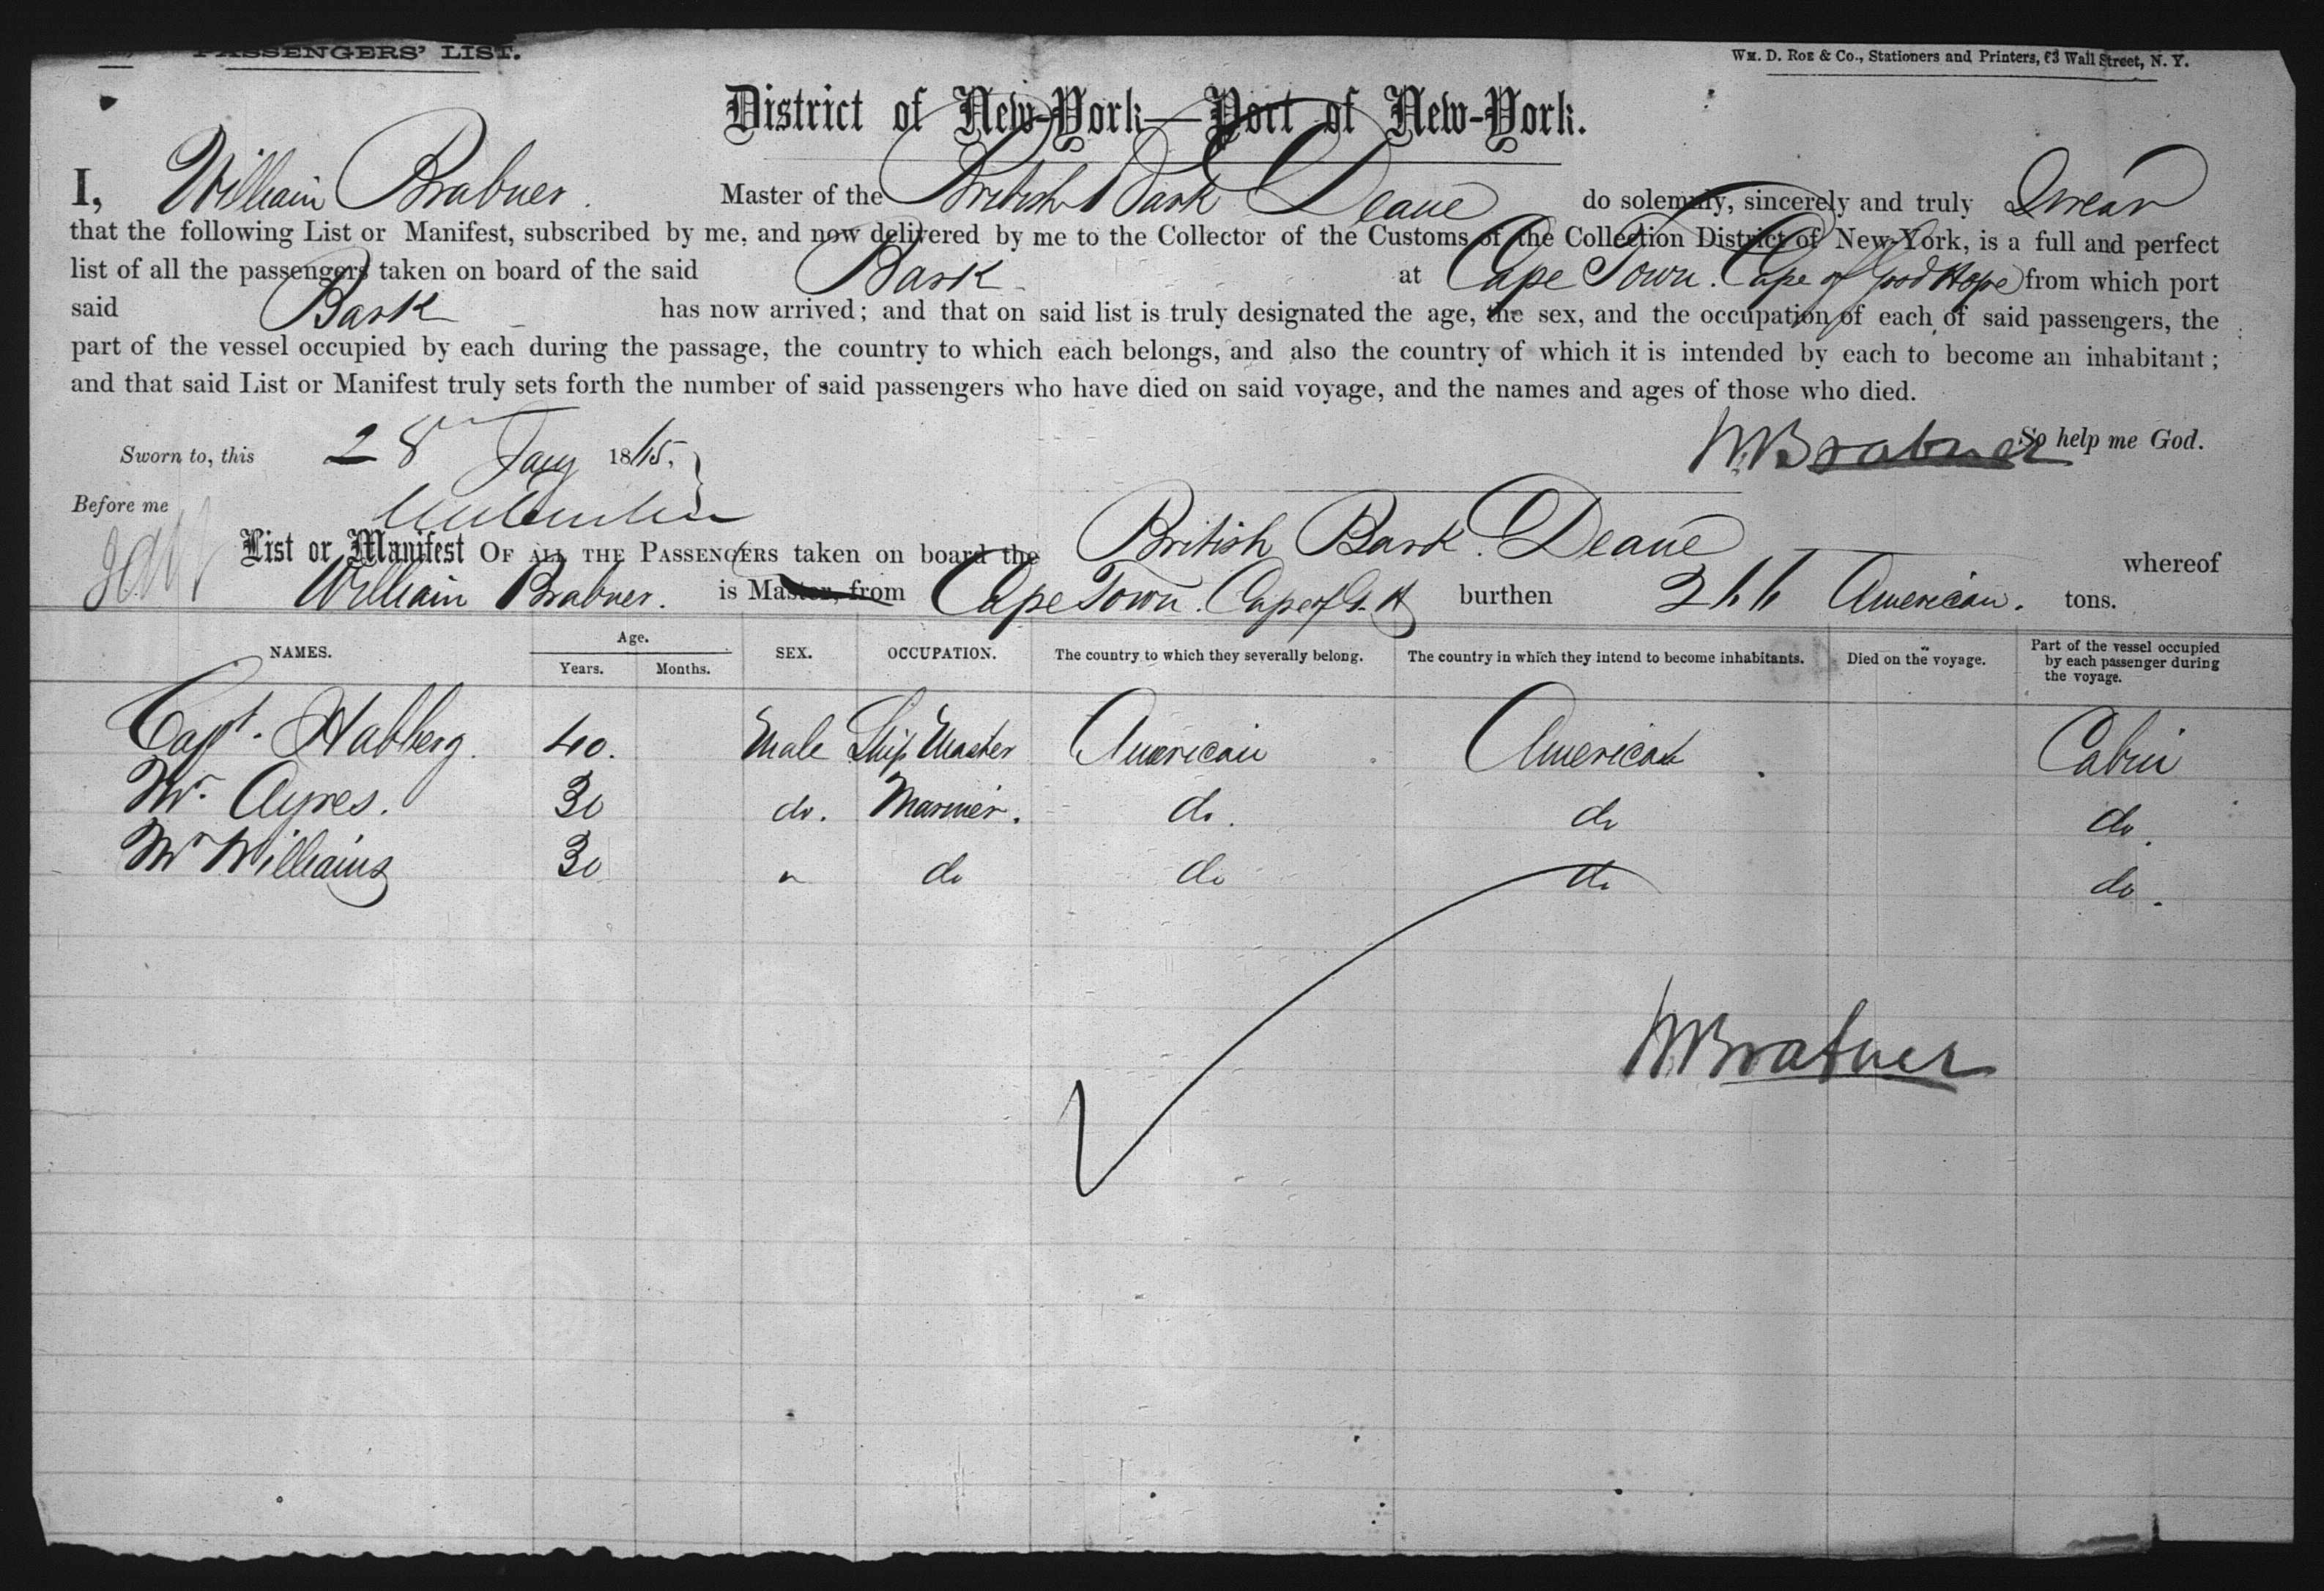 PASSENGERS' LIST.
WM. D. ROE & Co., Stationers and Printers, 63 Wall Street, N. Y.
District of New-York—Port of New-York.
I, William Brabner. Master of the British Bark Deane do solemnly, sincerely and truly Swear
that the following List or Manifest, subscribed by me, and now delivered by me to the Collector of the Customs of the Collection District of New-York, is a full and perfect
list of all the passengers taken on board of the said Bark at Cape Town. Cape of Good Hope from which port
said Bark has now arrived; and that on said list is truly designated the age, the sex, and the occupation of each of said passengers, the
part of the vessel occupied by each during the passage, the country to which each belongs, and also the country of which it is intended by each to become an inhabitant;
and that said List or Manifest truly sets forth the number of said passengers who have died on said voyage, and the names and ages of those who died.
Sworn to, this 28 Jany 1865, W. Brabner So help me God.
Before me
List or Manifest OF ALL THE PASSENGERS taken on board the British Bark Deane whereof
William Brabner. is Master, from Cape Town. Cape of G. H burthen 266 American. tons.
NAMES. Age. SEX. OCCUPATION. The country to which they severally belong. The country in which they intend to become inhabitants. Died on the voyage. Part of the vessel occupied by each passenger during the voyage.
Years. Months.
Capt. Habberg. 40. Male Ship Master American American Cabin
Mr. Ayres. 30 do. Mariner. do. do do.
Mr Williams 30 " do do do do.
W. Brabner